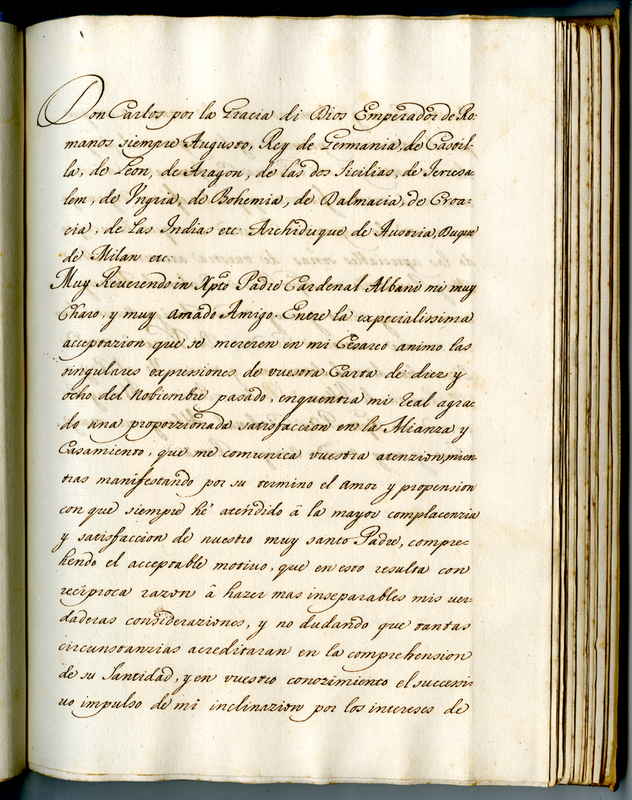 Don Carlos por la Gracia di Dios Emperador de Ro=
manos siempre Augusto, Rey de Germania, de Castil=
la, de Leon, de Aragon, de las dos Sicilias, de Jerusa=
lem, de Vngria, de Bohemia, de Dalmacia, de Croa=
cia, de las Indias etc: Archiduque de Austria, Duque
de Milan etc:
Muy Reverendo in Xpto Padre Cardenal Albani mi muy
Charo, y muy amado Amigo. Entre la expecialissima
acceptazion que se mereren en mi Cesareo animo las
singulares expressiones de vuestra Carta de diez y
ocho del Nobiembre pasado, enquentra mi real agra=
do una proporzionada satisfaccion en la Alianza y
Casamiento, que me comunica vuestra atenzion, mien
tras manifestando por su termino el amor y propension
con que siempre hé atendido â la mayor complacenzia
y satisfaccion de nuestro muy santo Padre, compre=
hendo el acceptable motivo, que en esto resulta con
reciproca razon â hazer mas inseparables mis ver=
daderas consideraziones, y no dudando que tantas
circunstanzias acreditaran en la comprehension
de su Santidad, y en vuestro conozimiento el successi=
vo impulso de mi inclinazion por los intereses de